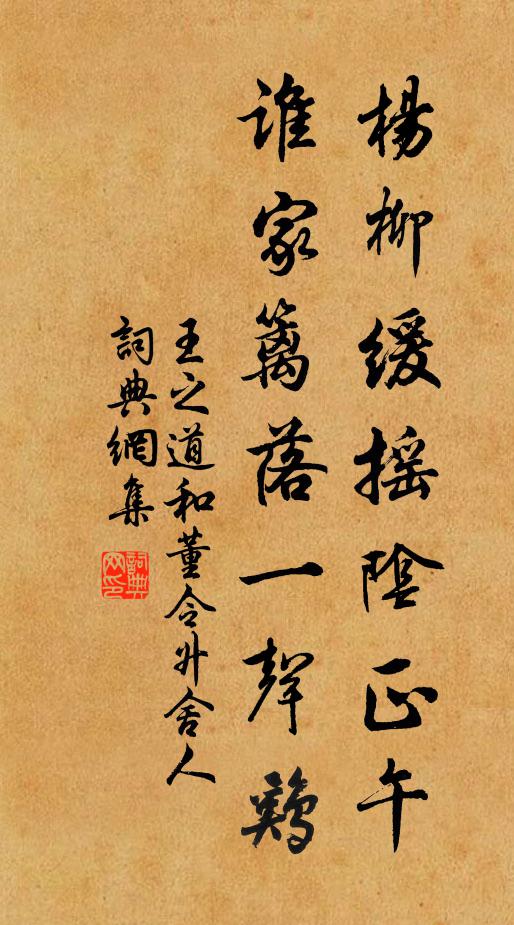 楊柳緩摇陰正午
誰家籬落一聲鷄
王之道和董令升舍人
詞典網集
詞典网印